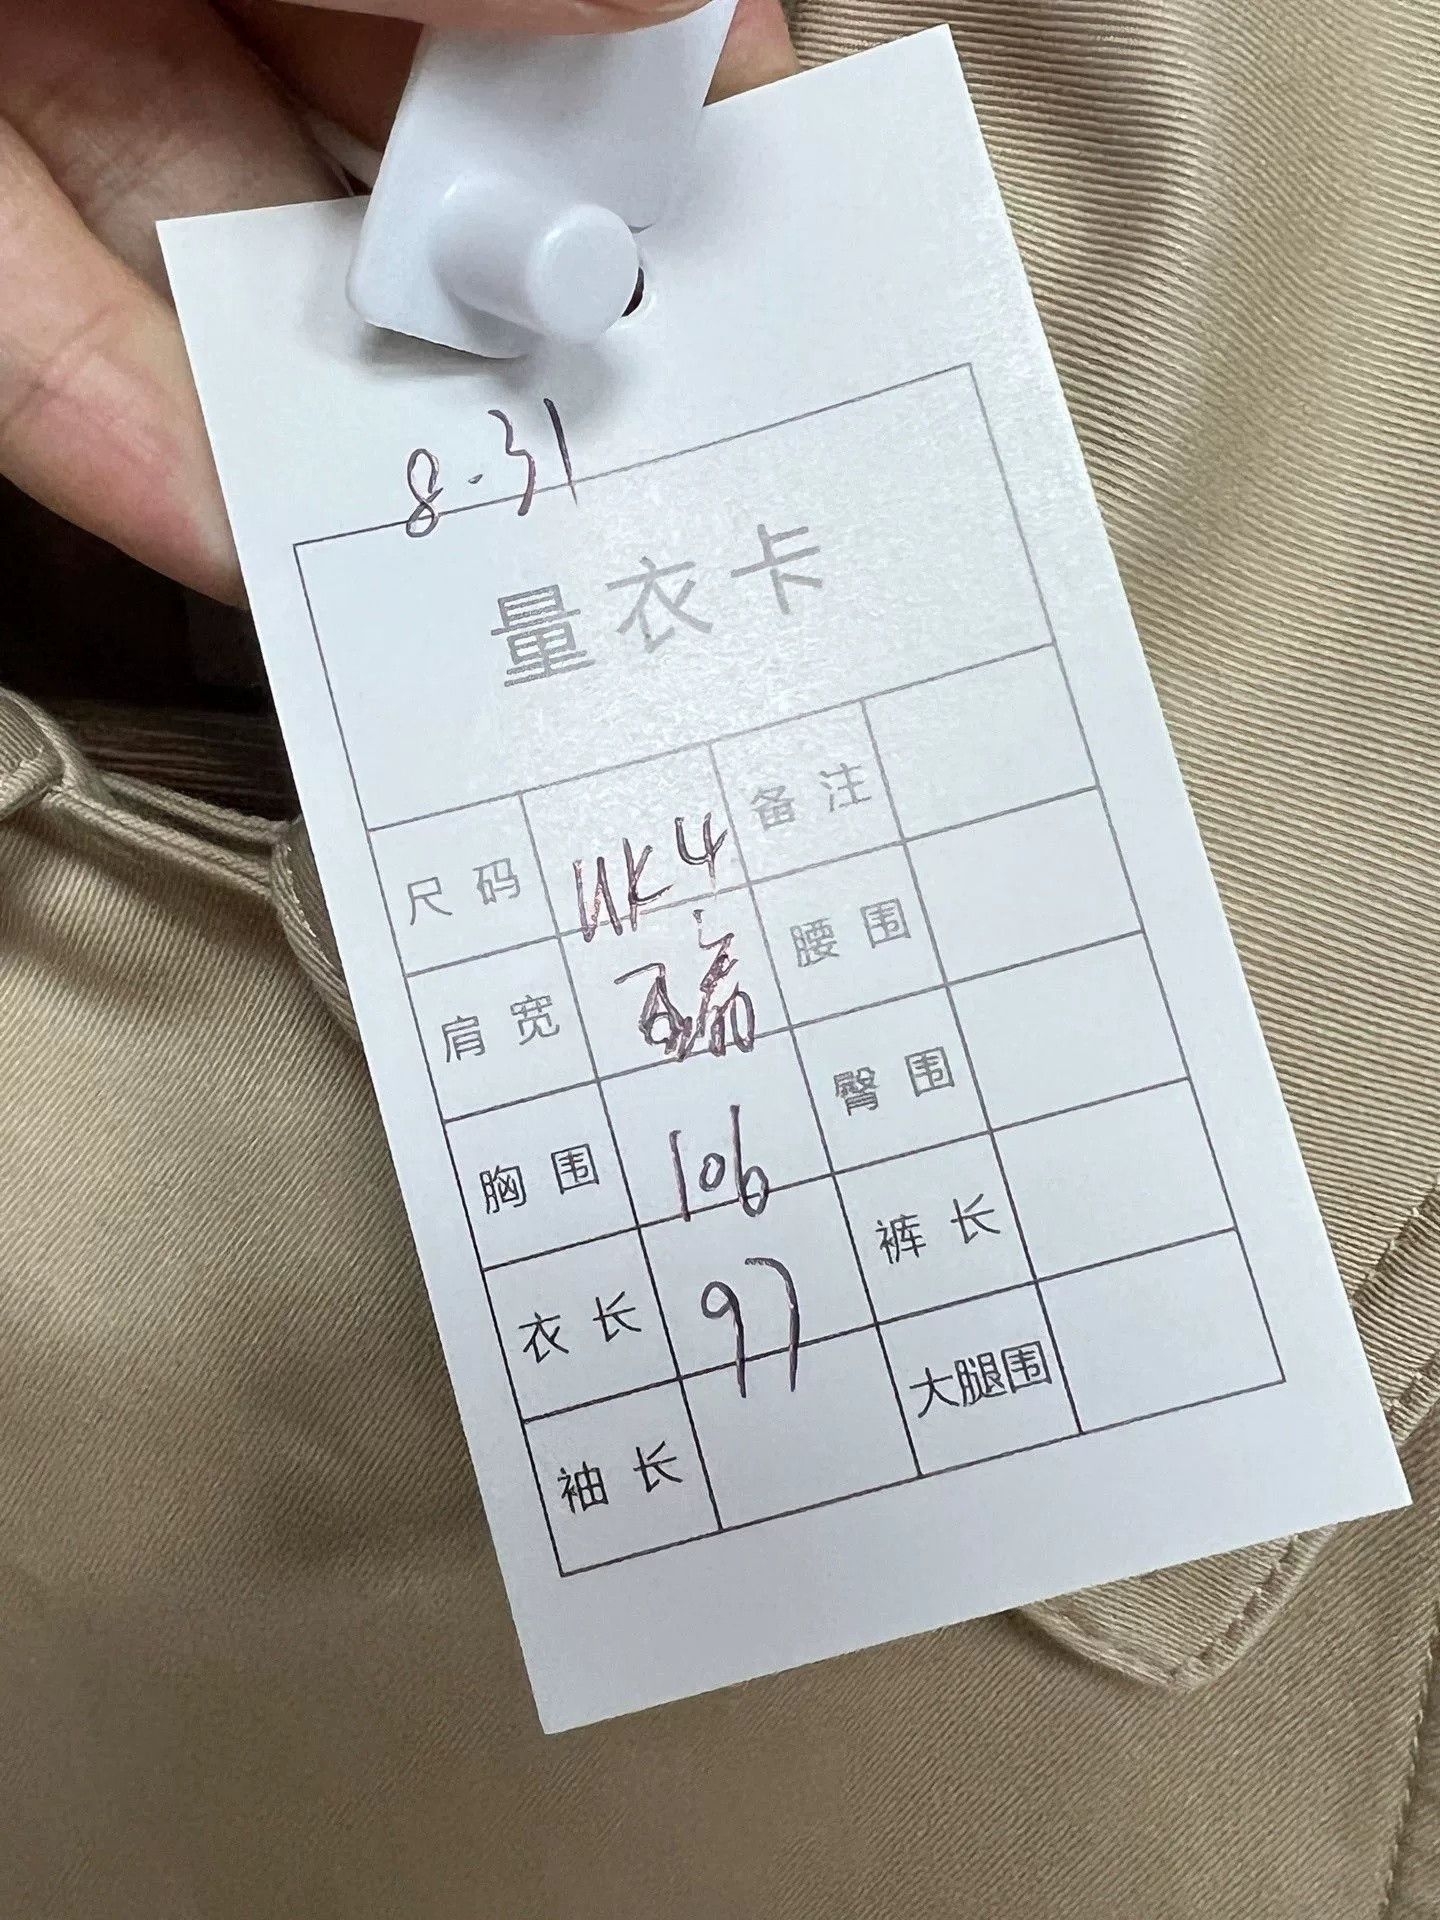 8.31
量衣卡
尺码 UK4 备注
肩宽 腰围
胸围 106 臀围
衣长 97 裤长
袖长 大腿围